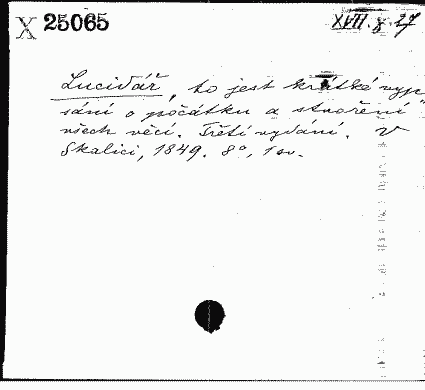 X 25065
XVII. g. 27
Lucidář, to jest krátké vyp
sání o počátku a stvoření
všech věcí. Třetí vydání. V
Skalici, 1849. 8°, 1 sv.